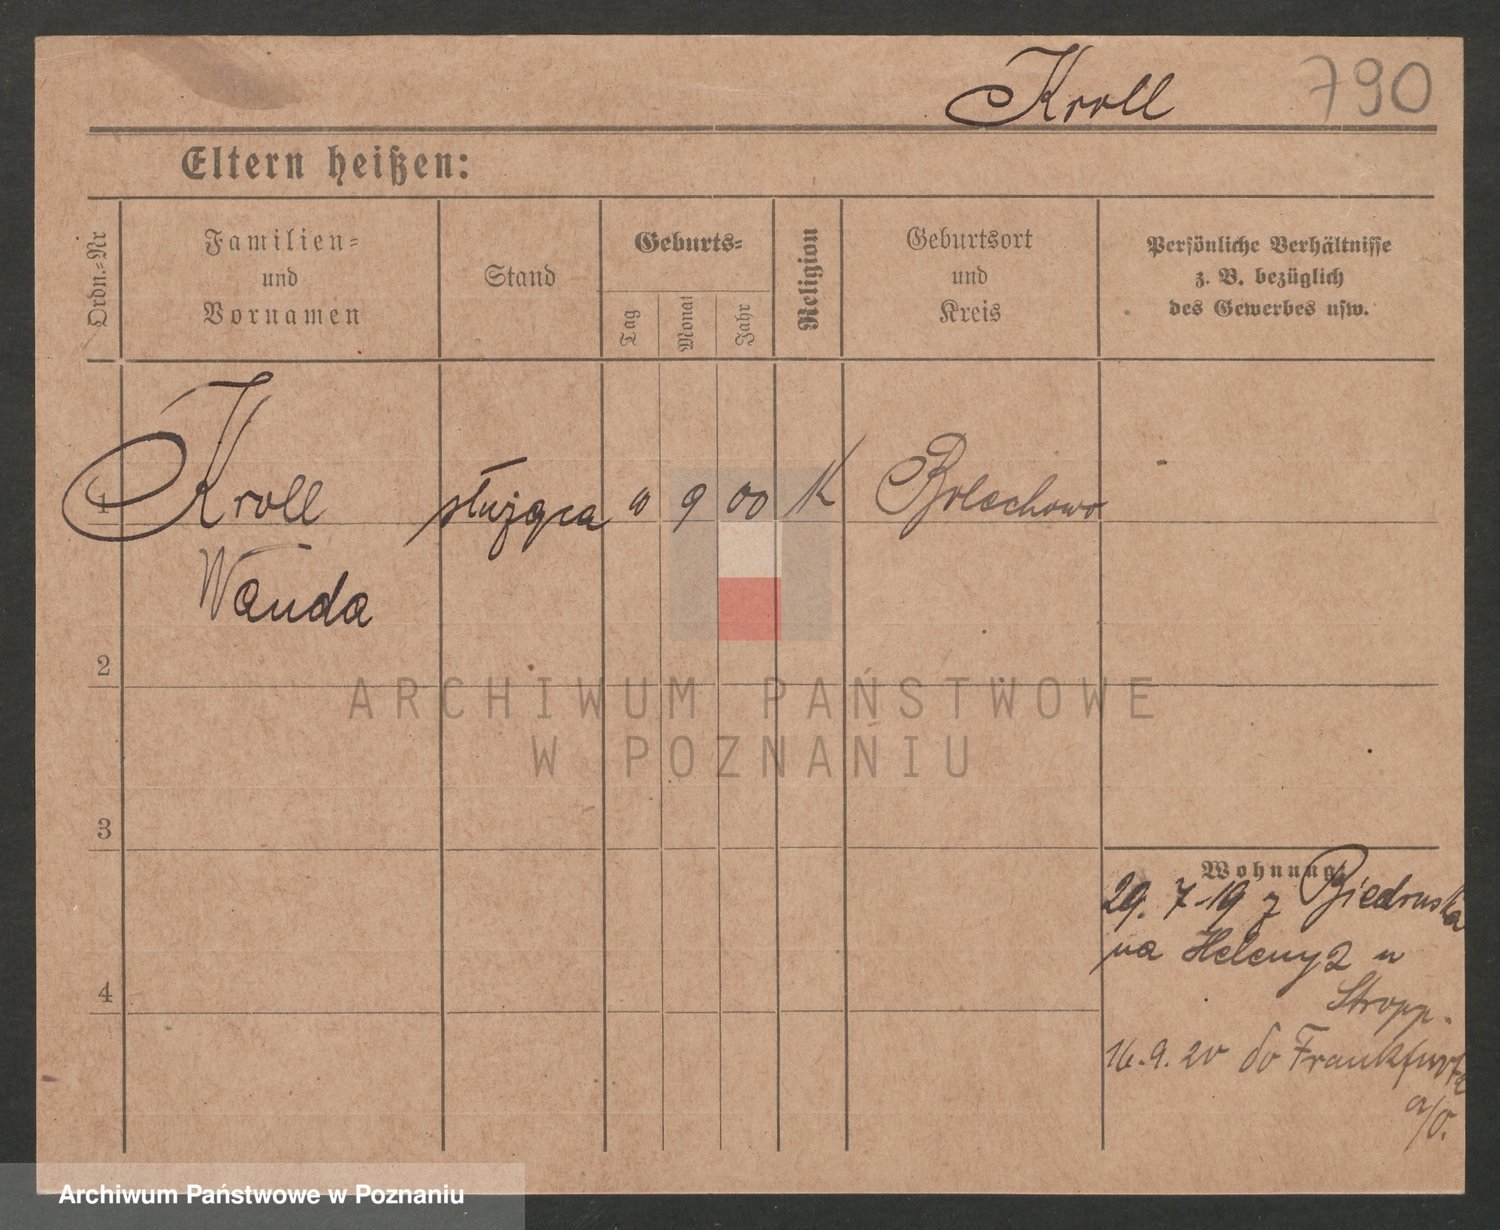 Kroll 790
Eltern heißen:
Ordn.-Nr
Familien-
und
Vornamen
Stand
Geburts-
Tag
Monat
Jahr
Religion
Geburtsort
und
Kreis
Persönliche Verhältnisse
z. B. bezüglich
des Gewerbes usw.
1 Kroll służąca 9 00 K Bolechowo
Wanda
2
ARCHIWUM PAŃSTWOWE
W POZNANIU
3
Wohnung:
29. 7. 19 z Biedruska
na Heleny 2 u
4
Stropp.
16. 9. 20 do Frankfurta
a/O.
Archiwum Państwowe w Poznaniu